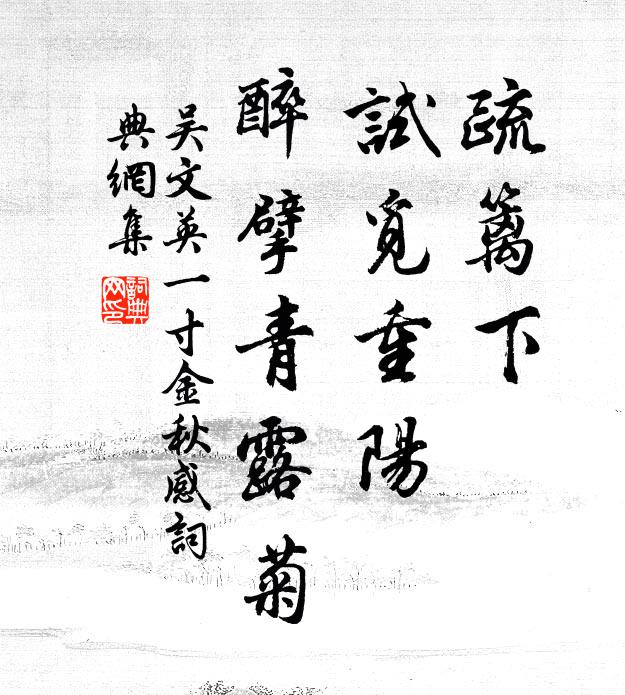 疏篱下
試覓重陽
醉擘青露菊
吴文英一寸金秋感詞
典網集
詞典
网印